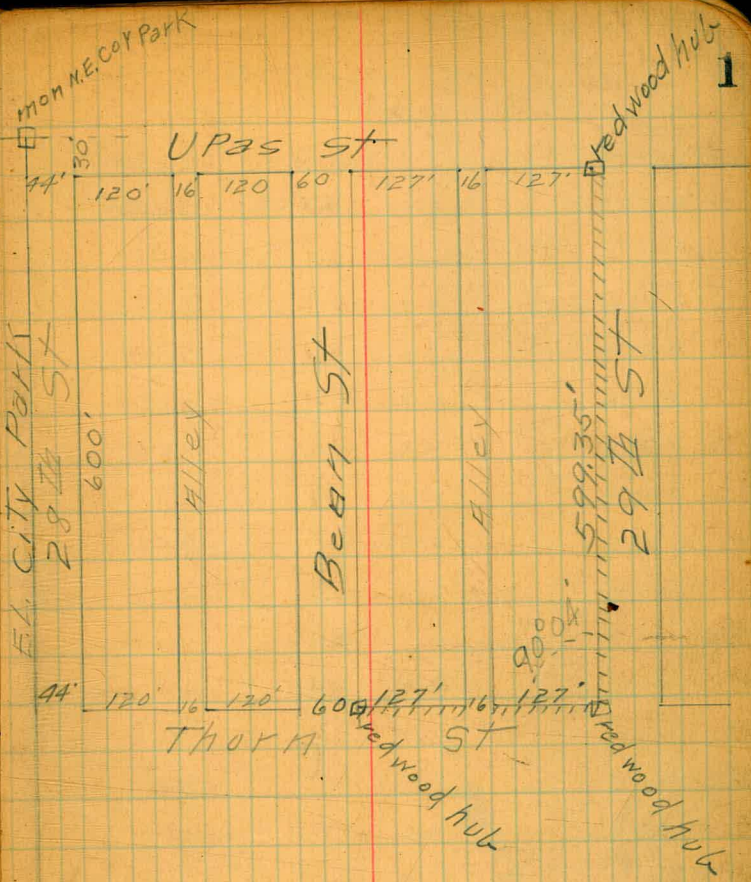 1
mon N.E. Cor Park
redwood hub
30'
Upas St
44' 120' 16' 120 60 127' 16 127'
E.L. City Park
28 th St
600'
Alley
Bean St
Alley
599.35'
29 th St
90° 04'
44' 120' 16 120' 60 127' 16 127'
Thorn St
redwood hub
redwood hub